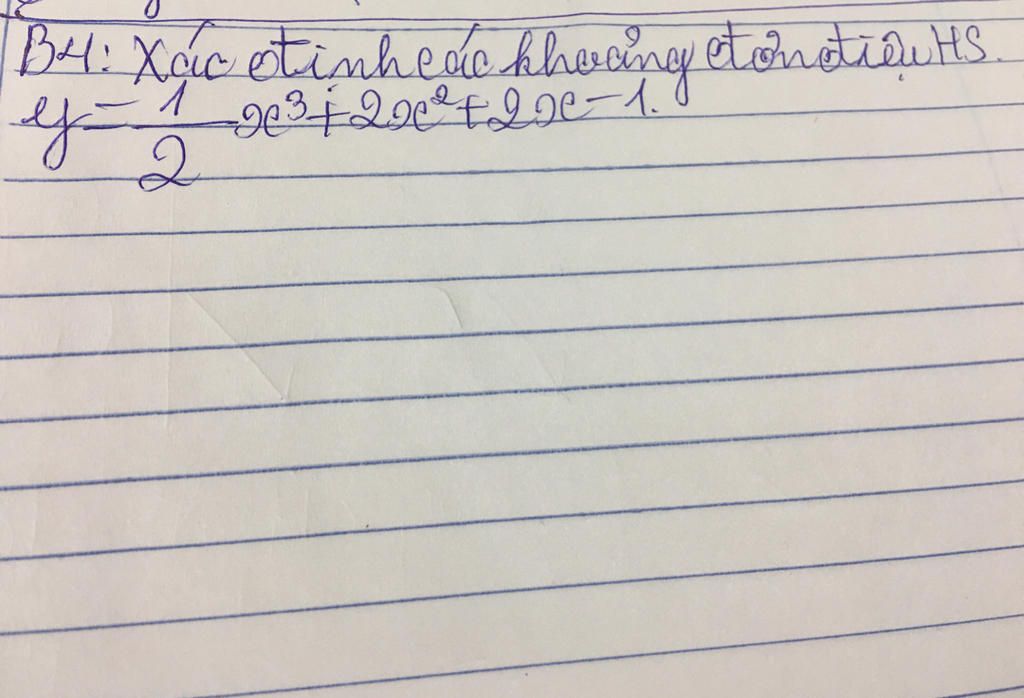 B4: Xác định các khoảng đơn điệu HS.
y = 1/2 x³ + 2x² + 2x - 1.